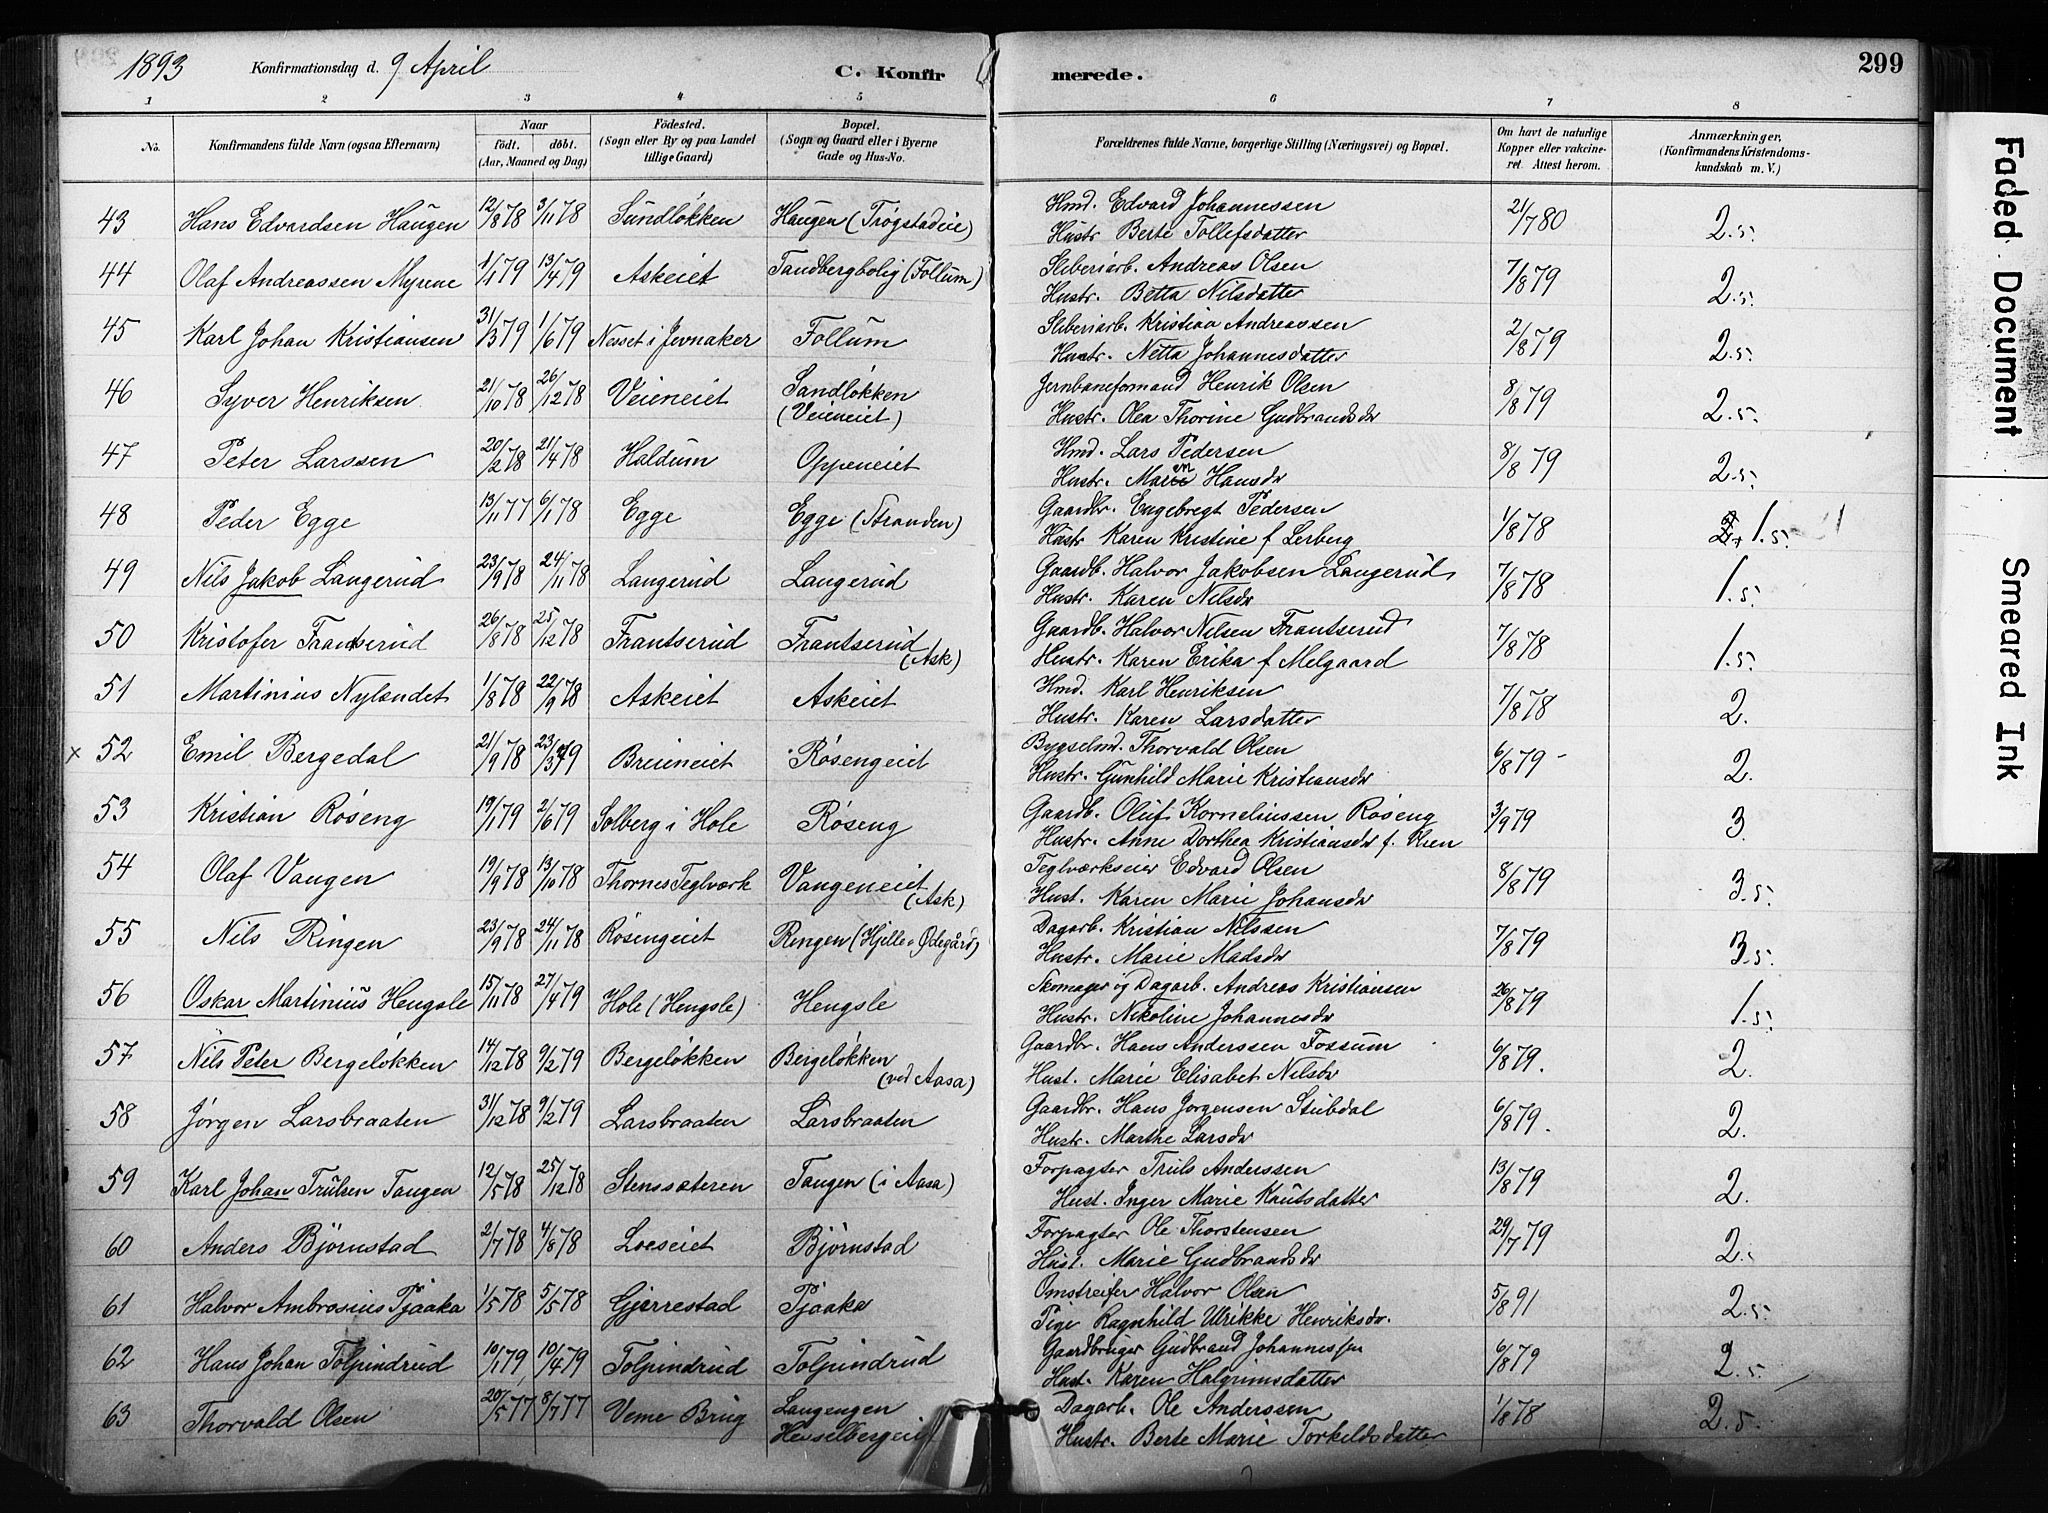 1893 Konfirmationsdag d. 9 April C. Konfirmerede. 299
1 2 3 4 5 6 7 8
No. Konfirmandens fulde Navn (ogsaa Efternavn) Naar født. døbt. (Aar, Maaned og Dag) Fødested. (Sogn eller By og paa Landet tillige Gaard) Bopæl. (Sogn og Gaard eller i Byerne Gade og Hus-No. Forældrenes fulde Navne, borgerlige Stilling (Næringsvei) og Bopæl. Om havt de naturlige Kopper eller vakcineret. Attest herom. Anmærkninger, (Konfirmandens Kristendomskundskab m. V.)
43 Hans Edvardsen Haugen 12/8 78 3/11 78 Sundløkken Haugen (Trøgstadeie) Hmd. Edvard Johannessen 21/7 80 2.5.
Hustr Berte Tollefsdatter
44 Olaf Andreassen Myrene 1/1 79 13/4 79 Askeiet Tandbergbolig (Follum) Sliberiarb. Andreas Olsen 7/8 79 2.5.
Hustr. Betta Nilsdatter
45 Karl Johan Kristiansen 31/3 79 1/6 79 Nesset i Jevnaker Follum Sliberiarb. Kristian Andreassen 2/8 79 2.5.
Hustr. Netta Johannesdatter
46 Syver Henriksen 21/10 78 26/12 78 Veieneiet Sandløkken (Veieneiet) Jernbaneformand Henrik Olsen 8/8 79 2.5.
Hustr. Olea Thorine Gudbrandsdr
47 Peter Larssen 20/2 78 21/4 78 Haldum Oppeneiet Hmd. Lars Pedersen 8/8 79 2.5.
Hustr. Maren Hansdr
48 Peder Egge 13/11 77 6/1 78 Egge Egge (Stranden) Gaardbr. Engebregt Pedersen 1/8 78 1.5.
Hustr Karen Kristine f Lerberg
49 Nils Jakob Langerud 23/9 78 24/11 78 Langerud Langerud Gaardb. Halvor Jakobsen Langerud 7/8 78 1.5.
Hustr. Karen Nilsdr
50 Kristofer Frantserud 26/8 78 25/12 78 Frantserud Frantserud (Ask) Gaardb. Halvor Nilsen Frantserud 7/8 78 1.5.
Hustr. Karen Erika f Melgaard
51 Martinius Nylandet 1/8 78 22/9 78 Askeiet Askeiet Hmd. Karl Henriksen 7/8 78 2.
Hustr. Karen Larsdatter
x 52 Emil Bergedal 21/9 78 23/3 79 Breieneiet Røsengeiet Bygselmd. Thorvald Olsen 6/8 79 2.
Hustr. Gunhild Marie Kristiansdr
53 Kristian Røseng 19/1 79 2/6 79 Solberg i Hole Røseng Gaardb. Oluf Korneliussen Røseng 3/9 79 3
Hustr. Anne Dorthea Kristiansdr f. Olsen
54 Olaf Vangen 19/9 78 13/10 78 Thornes Teglværk Vangeneiet (Ask) Teglværkseier Edvard Olsen 8/8 79 3.5.
Hust. Karen Marie Johansdr
55 Nils Ringen 23/9 78 24/11 78 Røsengeiet Ringen (Hjelle Ødegård) Dagarb. Kristian Nilssen 7/8 79 3.5.
Hustr. Marie Madsdr
56 Oskar Martinius Hengsle 15/11 78 27/4 79 Hole (Hengsle) Hengsle Skomager og Dagarb. Andreas Kristiansen 26/8 79 1.5.
Hustr. Nikoline Johannesdr
57 Nils Peter Bergeløkken 14/12 78 9/2 79 Bergeløkken Bergeløkken (ved Aasa) Gaardbr. Hans Anderssen Fossum 6/8 79. 2.
Hust. Marie Elisabet Nilsdr
58 Jørgen Larsbraaten 31/12 78 9/2 79 Larsbraaten Larsbraaten Gaardbr. Hans Jørgensen Stubdal 6/8 79. 2.
Hustr. Marthe Larsdr
59 Karl Johan Trulsen Tangen 12/5 78 25/12 78 Stenssæteren Tangen (i Aasa) Forpagter Truls Anderssen 13/8 79 2.
Hust. Inger Marie Knutsdatter
60 Anders Bjørnstad 2/7 78 4/8 78 Loeseiet Bjørnstad Forpagter Ole Thorstensen 29/7 79 2.
Hust. Marie Gudbrandsdr
61 Halvor Ambrosius Pjaaka 1/5 78 5/5 78 Gjerrestad Pjaaka Omstreifer Halvor Olsen 5/8 91 2.5.
Pige Ragnhild Ulrikke Henriksdr.
62 Hans Johan Tolpindrud 10/1 79 10/4 79 Tolpindrud Tolpindrud Gaardbruger Gudbrand Johannessen 6/8 79 2.5.
Hust. Karen Halgrimsdatter
63 Thorvald Olsen 20/5 77 8/7 77 Veme Brug Langengen Heiselbergeiet Dagarb. Ole Anderssen 1/8 78 2.5.
Hustr. Berte Marie Torkildsdatter
Faded Document Smeared Ink